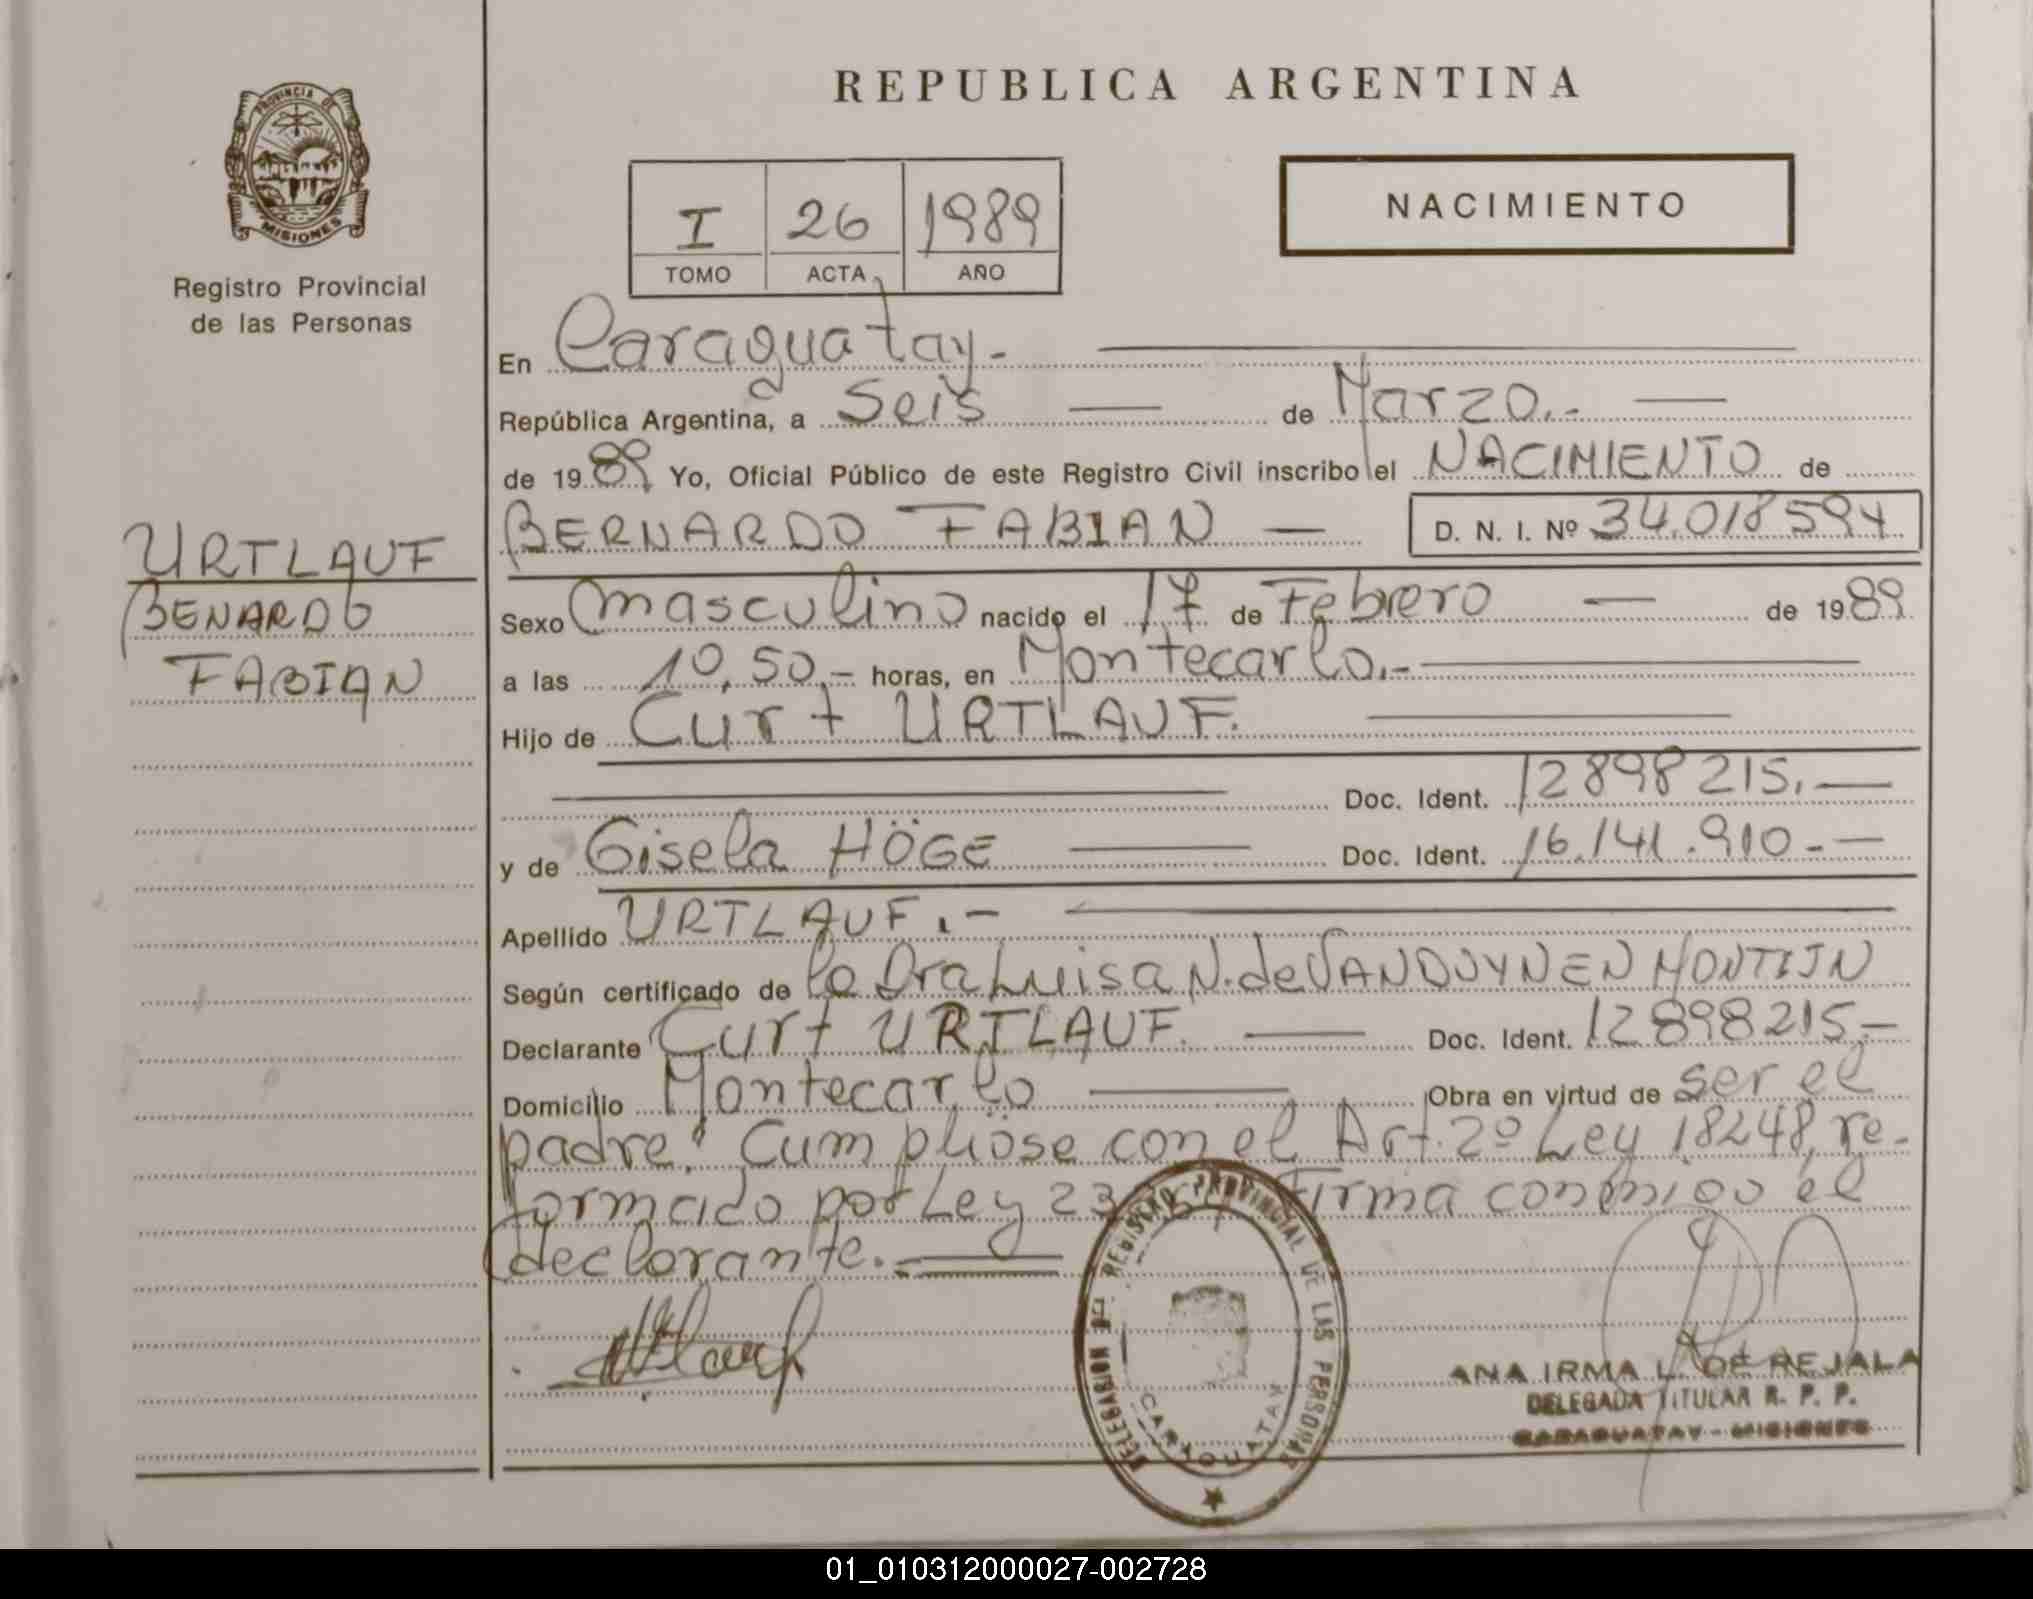 REPUBLICA ARGENTINA
PROVINCIA DE
MISIONES
Registro Provincial
de las Personas
I 26 1989
TOMO ACTA AÑO
NACIMIENTO
En Caraguatay.-
República Argentina, a Seis de Marzo.-
de 1989 Yo, Oficial Público de este Registro Civil inscribo el NACIMIENTO de
BERNARDO FABIAN — D. N. I. Nº 34.018594
URTLAUF
BENARDO
FABIAN
Sexo masculino nacido el 17 de Febrero — de 1989
a las 10,50.- horas, en Montecarlo.-
Hijo de Curt URTLAUF.
Doc. Ident. 12898215.—
y de Gisela HÖGE — Doc. Ident. 16.141.910.-—
Apellido URTLAUF.-
Según certificado de la Dra Luisa N. de VANDUYNEN MONTIJN
Declarante Curt URTLAUF. — Doc. Ident. 12898215.-
Domicilio Montecarlo — Obra en virtud de ser el
padre. Cumpliose con el Art. 2º Ley 18248, re-
formado por Ley Firma conmigo el
declarante.-
ANA IRMA L. DE REJALA
DELEGADA TITULAR R. P. P.
CARAGUATAY - MISIONES
DELEGACION DEL REGISTRO PROVINCIAL DE LAS PERSONAS
CARAGUATAY
01_010312000027-002728